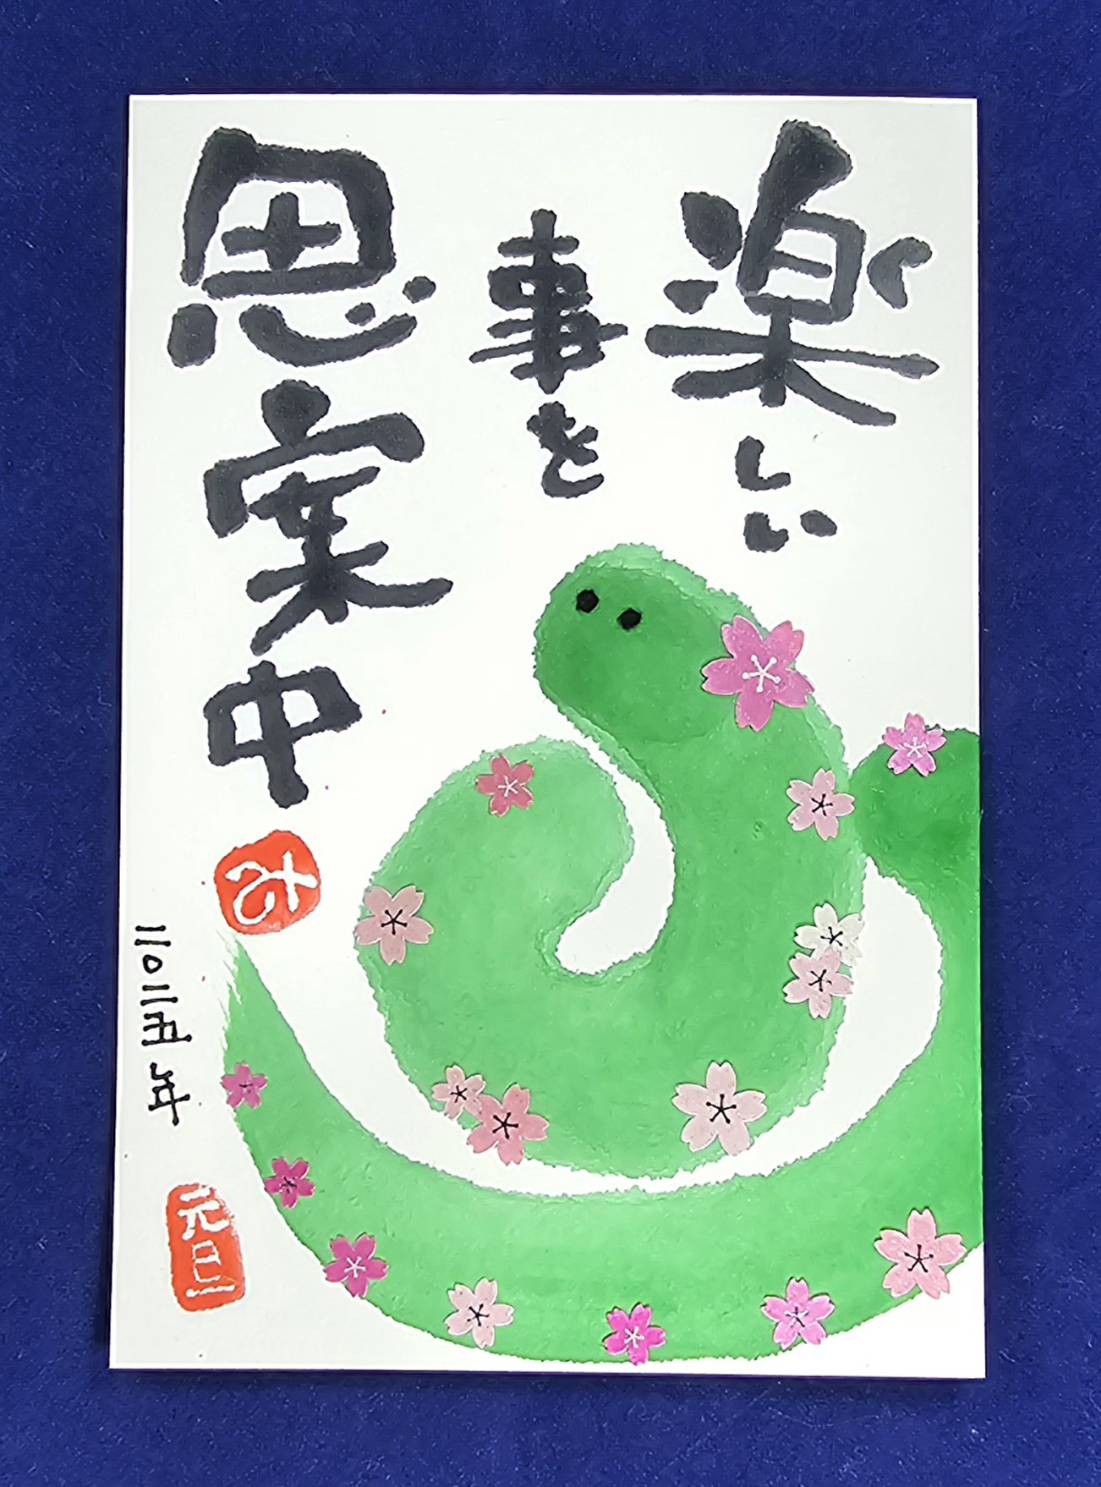 楽しい
事を
思案中
み
二〇二五年
元旦